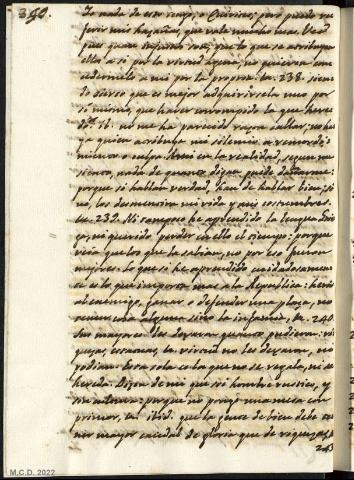 390.
Yo nada de esto tengo, o Quirites; pero puedo re
ferir mis hazañas, que vale mucho mas. Ved
pues quan injustos son, que lo que se atribuyen
ellos a si por la virtud agena, no quieran con
cedermelo a mi por la propria. ib. 238. sien
do cierto que es mejor adquirirsela uno por
si mismo, que haver corrompido la que here
dó. ib. no me ha parecido razon callar, no ha
ya quien atribuya mi silencio a remordi
miento o culpa. A mi en la realidad, segun me
siento, nada de quanto digan puede dañarme:
porque si hablan verdad, han de hablar bien; si
no, los desmentirán mi vida y mis costumbres.
ib. 239. Ni tampoco he aprendido la lengua Grie
ga, ni querido perder en ella el tiempo: porque
veia que los que la sabian, no por eso fueron
mejores. lo que si he aprendido cuidadosamen
te es lo que importa mas a la Republica: herir
al enemigo, ganar o defender una plaza, no
temer cosa alguna sino la infamia, ib. 240.
Sus mayores les dexaron quanto pudieron: ri
quezas, estatuas, la virtud no les dexaron, no
podian. Esta sola es la que no se regala, ni se
hereda. Dicen de mi que soi hombre rustico, y
sin cultura: porque no pongo una mesa con
primor, ib. ibid. que la gente de bien debe te
ner mayor caudal de gloria que de riquezas, ib
243
M.C.D. 2022